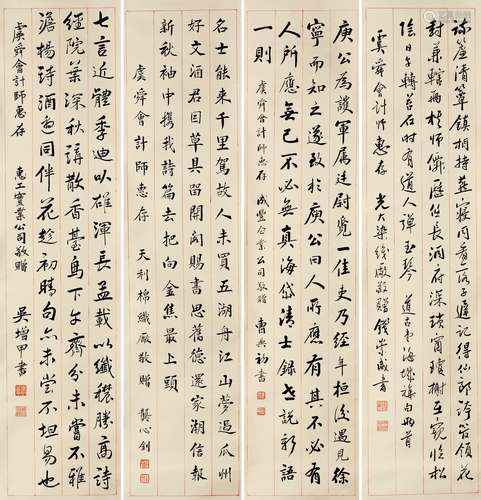 疎簾清簟鎮相持燕寢內看一落子遲記得仙郎管領花
封兼轄兩枝師儼歷住長洞府深瑣窗瓊榭立窺臨松
陰日午轉若石时有道人譚玉琴 道古海棠句兩首
虞舜會計師惠存 光大染織廠敬贈 錢崇威書
庾公為護軍屬廷尉覓一佳吏乃經年桓後遇見徐
寧而知之遂致於庾公曰人所應有其不必有
人所應無己不必無真海岱清士錄世說新語
一則 虞舜會計師惠存 咸豐企業公司敬贈 曹典初書
名士能來千里駕故人未買五湖舟江山夢過瓜州
好文酒君因草具留開閣賜書思舊德還家湖信報
新秋袖中攜我詩篇去把向金焦最上頭
虞舜會計師惠存 天利棉織廠敬贈 龔心釗
七言近體季迪以雄渾長孟載以纖穠勝高詩
經院葉深秋講散香臺鳥下午齋分未嘗不雅
澹楊詩酒色同伴花趁初晴句亦未嘗不坦易也
虞舜會計師惠存 惠工實業公司敬贈 吳增甲書